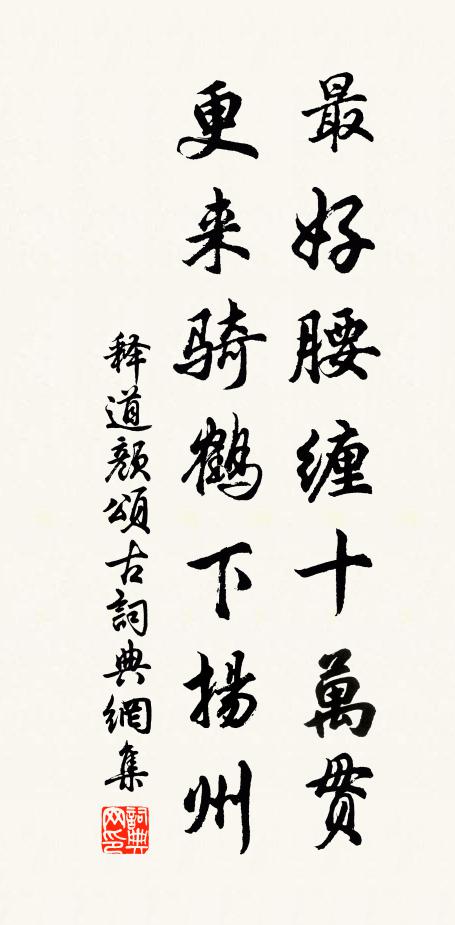 最好腰缠十萬貫
更来骑鹤下揚州
释道颜頌古詞典網集
詞典網印